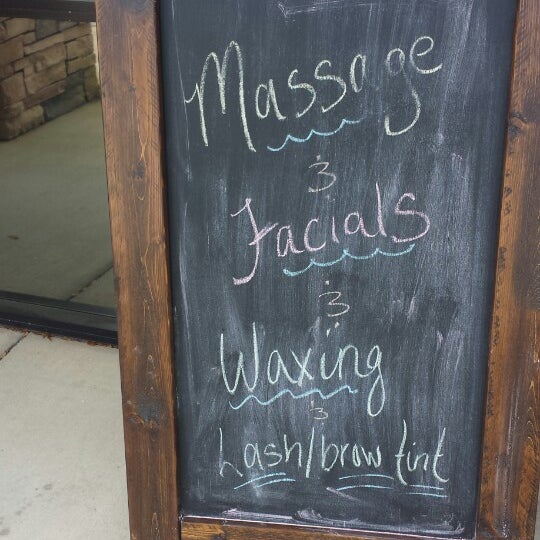 Massage
&
Facials
&
Waxing
&
Lash/brow tint